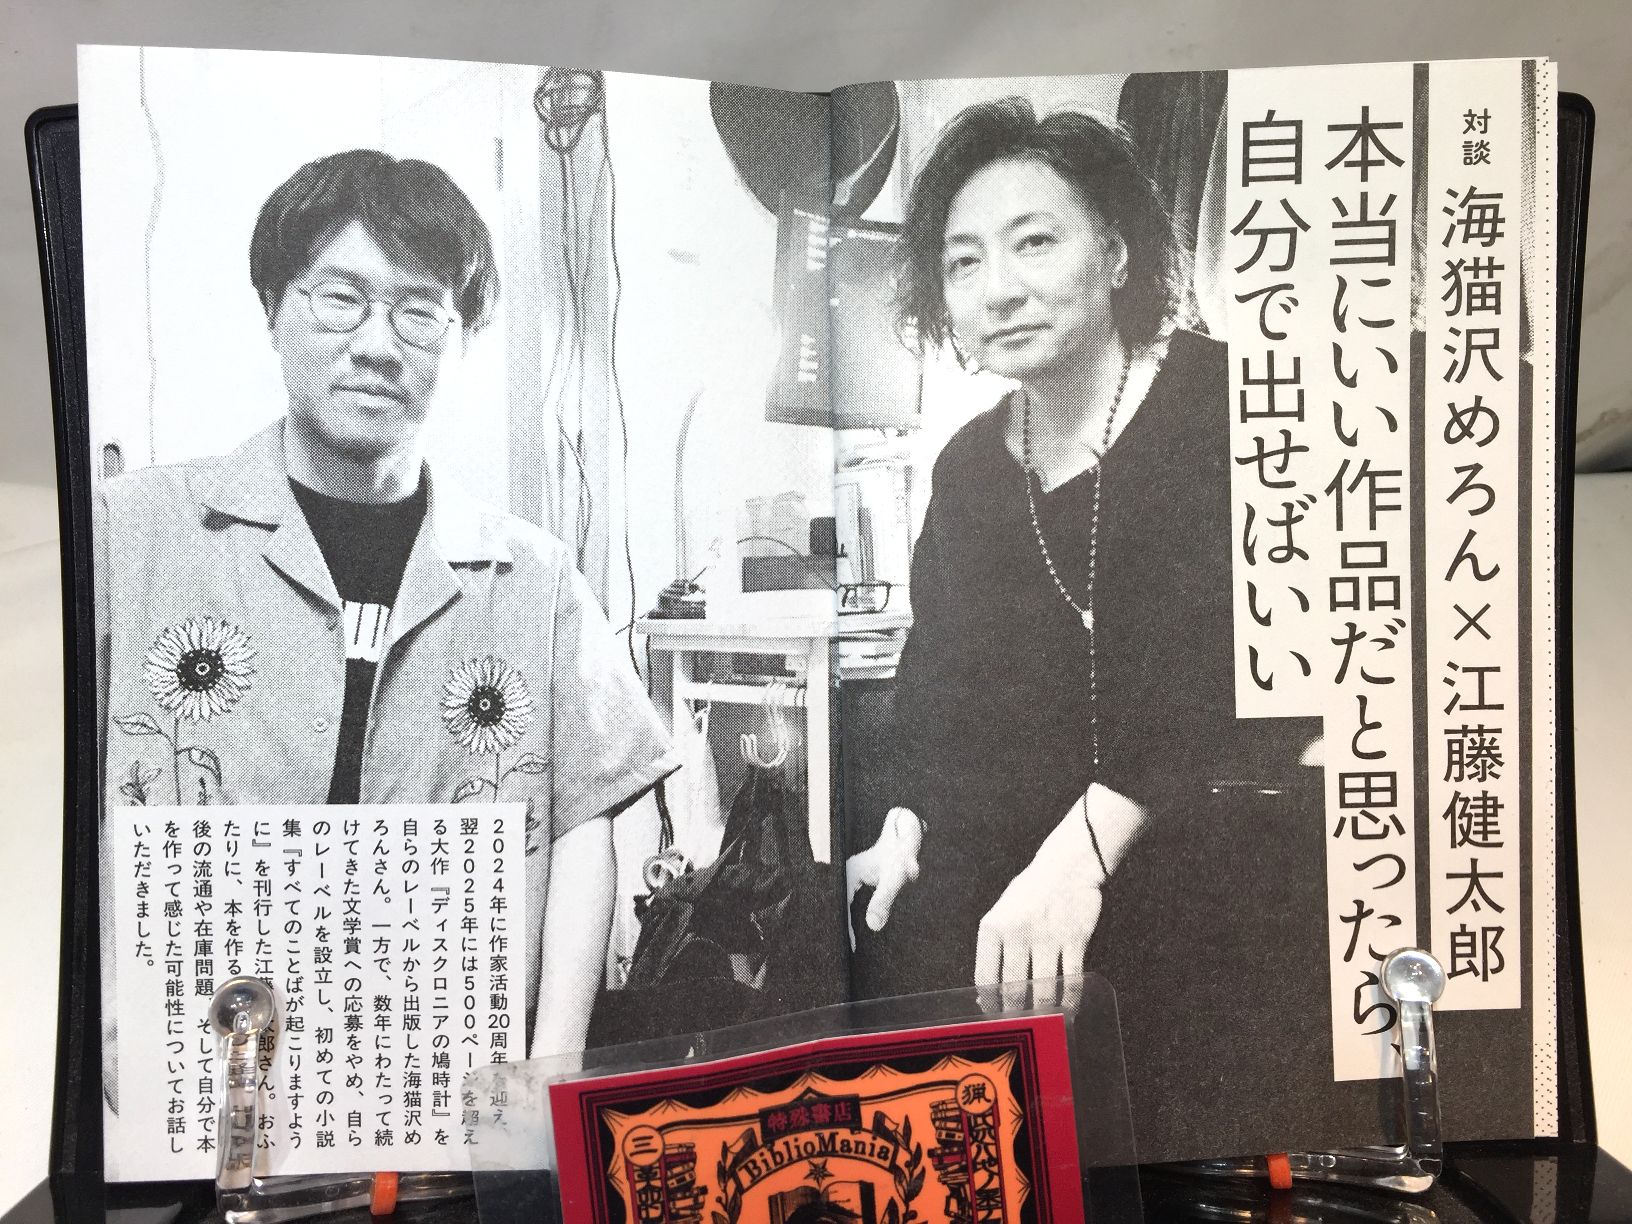 対談 海猫沢めろん×江藤健太郎
本当にいい作品だと思ったら、
自分で出せばいい
2024年に作家活動20周年を迎え、
翌2025年には500ページを超え
る大作『ディスクロニアの鳩時計』を
自らのレーベルから出版した海猫沢め
ろんさん。一方で、数年にわたって続
けてきた文学賞への応募をやめ、自ら
のレーベルを設立し、初めての小説
集『すべてのことばが起こりますよう
に』を刊行した江藤 太郎さん。おふ
たりに、本を作る
後の流通や在庫問題、そして自分で本
を作って感じた可能性についてお話し
いただきました。
特殊書店
BiblioMania
猟
三